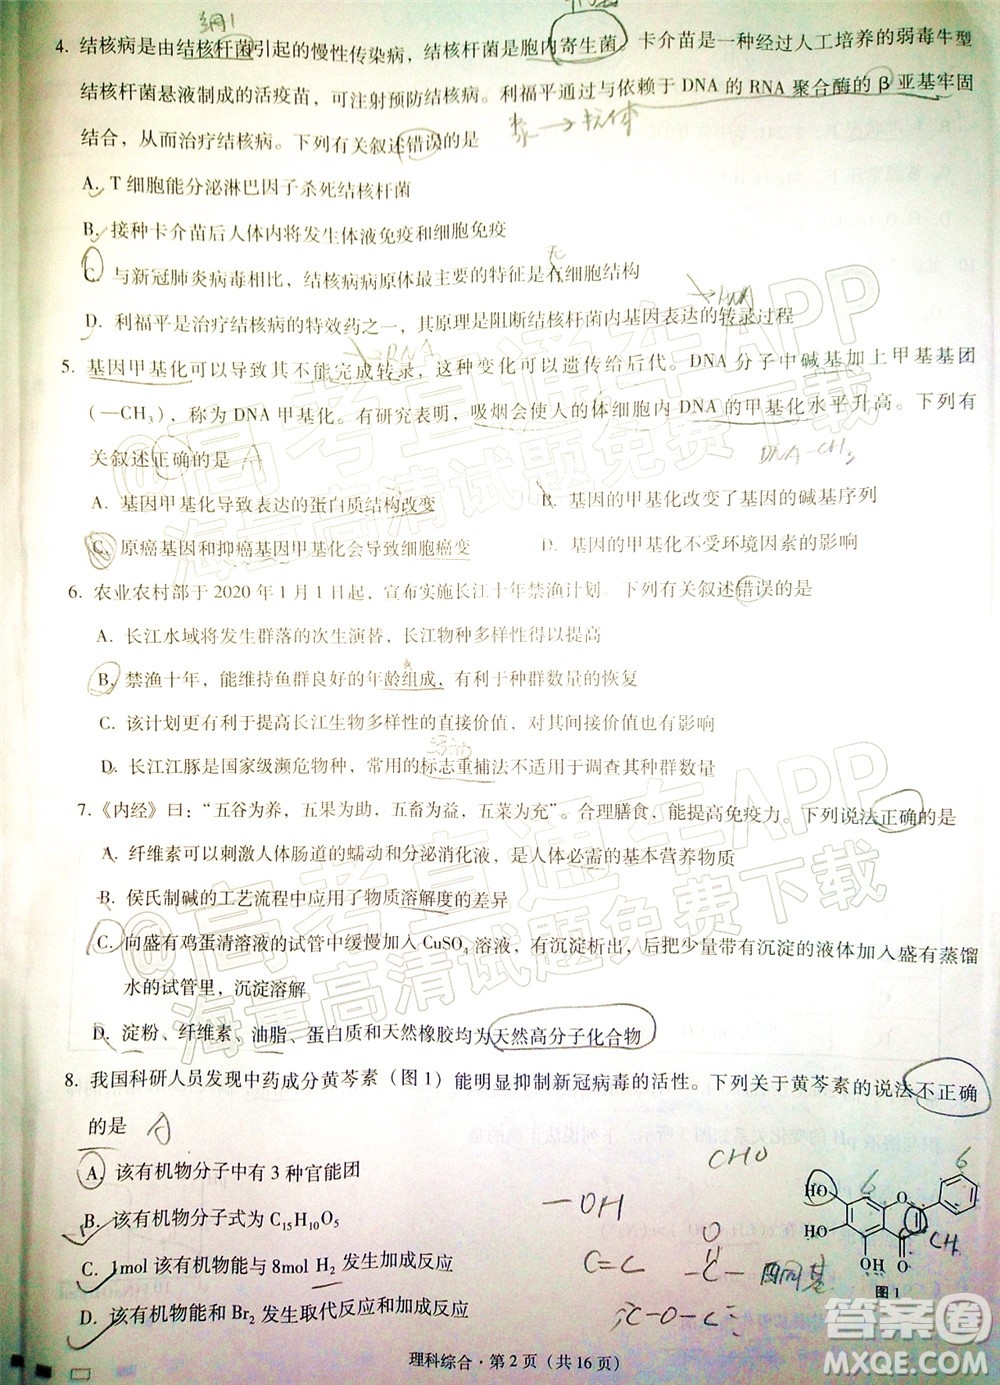 4. 结核病是由结核杆菌引起的慢性传染病，结核杆菌是胞内寄生菌。卡介苗是一种经过人工培养的弱毒牛型
结核杆菌悬液制成的活疫苗，可注射预防结核病。利福平通过与依赖于 DNA 的 RNA 聚合酶的 β 亚基牢固
结合，从而治疗结核病。下列有关叙述错误的是
A. T 细胞能分泌淋巴因子杀死结核杆菌
B. 接种卡介苗后人体内将发生体液免疫和细胞免疫
C. 与新冠肺炎病毒相比，结核病病原体最主要的特征是有细胞结构
D. 利福平是治疗结核病的特效药之一，其原理是阻断结核杆菌内基因表达的转录过程
5. 基因甲基化可以导致其不能完成转录，这种变化可以遗传给后代。DNA 分子中碱基加上甲基基团
(—CH₃)，称为 DNA 甲基化。有研究表明，吸烟会使人的体细胞内 DNA 的甲基化水平升高。下列有
关叙述正确的是
A. 基因甲基化导致表达的蛋白质结构改变 B. 基因的甲基化改变了基因的碱基序列
C. 原癌基因和抑癌基因甲基化会导致细胞癌变 D. 基因的甲基化不受环境因素的影响
6. 农业农村部于 2020 年 1 月 1 日起，宣布实施长江十年禁渔计划。下列有关叙述错误的是
A. 长江水域将发生群落的次生演替，长江物种多样性得以提高
B. 禁渔十年，能维持鱼群良好的年龄组成，有利于种群数量的恢复
C. 该计划更有利于提高长江生物多样性的直接价值，对其间接价值也有影响
D. 长江江豚是国家级濒危物种，常用的标志重捕法不适用于调查其种群数量
7.《内经》曰：“五谷为养，五果为助，五畜为益，五菜为充”。合理膳食，能提高免疫力。下列说法正确的是
A. 纤维素可以刺激人体肠道的蠕动和分泌消化液，是人体必需的基本营养物质
B. 侯氏制碱的工艺流程中应用了物质溶解度的差异
C. 向盛有鸡蛋清溶液的试管中缓慢加入 CuSO₄ 溶液，有沉淀析出，后把少量带有沉淀的液体加入盛有蒸馏
水的试管里，沉淀溶解
D. 淀粉、纤维素、油脂、蛋白质和天然橡胶均为天然高分子化合物
8. 我国科研人员发现中药成分黄芩素（图 1）能明显抑制新冠病毒的活性。下列关于黄芩素的说法不正确
的是
A. 该有机物分子中有 3 种官能团
B. 该有机物分子式为 C₁₅H₁₀O₅
C. 1mol 该有机物能与 8mol H₂ 发生加成反应
D. 该有机物能和 Br₂ 发生取代反应和加成反应
CHO
—OH
HO
HO
OH
O
O
图 1
理科综合·第 2 页（共 16 页）
@高考直通车APP
海量高清试题免费下载
@高考直通车APP
海量高清试题免费下载
答案圈
MXQE.COM